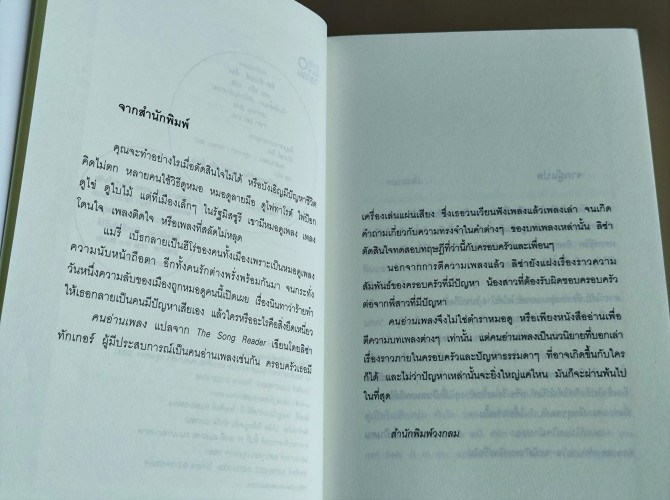 จากสำนักพิมพ์
คุณจะทำอย่างไรเมื่อตัดสินใจไม่ได้ หรือบังเอิญมีปัญหาชีวิต
คิดไม่ตก หลายคนใช้วิธีดูหมอ หมอดูลายมือ ดูไพ่ทาโรต์ ไพ่ป๊อก
ดูไข่ ดูใบไม้ แต่ที่เมืองเล็กๆ ในรัฐมิสซูรี เขามีหมอดูเพลง เพลง
โดนใจ เพลงติดใจ หรือเพลงที่สลัดไม่หลุด
แมรี่ เบ็ธกลายเป็นฮีโร่ของคนทั้งเมืองเพราะเป็นหมอดูเพลง
ความนับหน้าถือตา อีกทั้งคนรักต่างพรั่งพร้อมกันมา จนกระทั่ง
วันหนึ่งความลับของเมืองถูกหมอดูคนนี้เปิดเผย เรื่องนินทาว่าร้ายทำ
ให้เธอกลายเป็นคนมีปัญหาเสียเอง แล้วใครหรืออะไรคือสิ่งยึดเหนี่ยว
คนอ่านเพลง แปลจาก The Song Reader เขียนโดยลิซ่า
ทักเกอร์ ผู้มีประสบการณ์เป็นคนอ่านเพลงเช่นกัน ครอบครัวเธอมี
เครื่องเล่นแผ่นเสียง ซึ่งเธอวนเวียนฟังเพลงแล้วเพลงเล่า จนเกิด
คำถามเกี่ยวกับความทรงจำในคำต่างๆ ของบทเพลงเหล่านั้น ลิซ่า
ตัดสินใจทดสอบทฤษฎีที่ว่านี้กับครอบครัวและเพื่อนๆ
นอกจากการตีความเพลงแล้ว ลิซ่ายังแฝงเรื่องราวความ
สัมพันธ์ของครอบครัวที่มีปัญหา น้องสาวที่ต้องรับผิดชอบครอบครัว
ต่อจากพี่สาวที่มีปัญหา
คนอ่านเพลงจึงไม่ใช่ตำราหมอดู หรือเพียงหนังสืออ่านเพื่อ
ตีความบทเพลงต่างๆ เท่านั้น แต่คนอ่านเพลงเป็นนวนิยายที่บอกเล่า
เรื่องราวภายในครอบครัวและปัญหาธรรมดาๆ ที่อาจเกิดขึ้นกับใคร
ก็ได้ และไม่ว่าปัญหาเหล่านั้นจะยิ่งใหญ่แค่ไหน มันก็จะผ่านพ้นไป
ในที่สุด
สำนักพิมพ์วงกลม